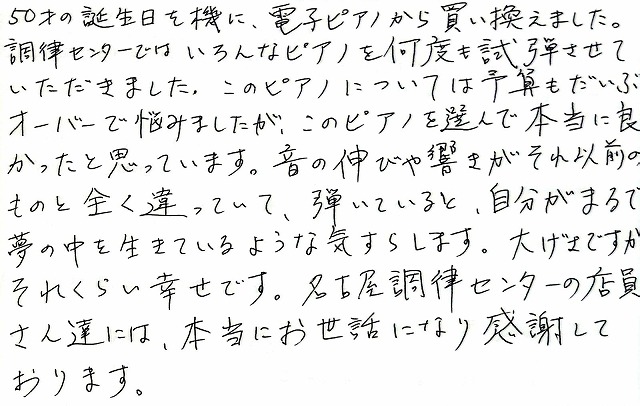 50才の誕生日を機に、電子ピアノから買い換えました。
調律センターではいろんなピアノを何度も試弾させて
いただきました。このピアノについては予算もだいぶ
オーバーで悩みましたが、このピアノを選んで本当に良
かったと思っています。音の伸びや響きがそれ以前の
ものと全く違っていて、弾いていると、自分がまるで
夢の中を生きているような気すらします。大げさですが
それくらい幸せです。名古屋調律センターの店員
さん達には、本当にお世話になり感謝して
おります。